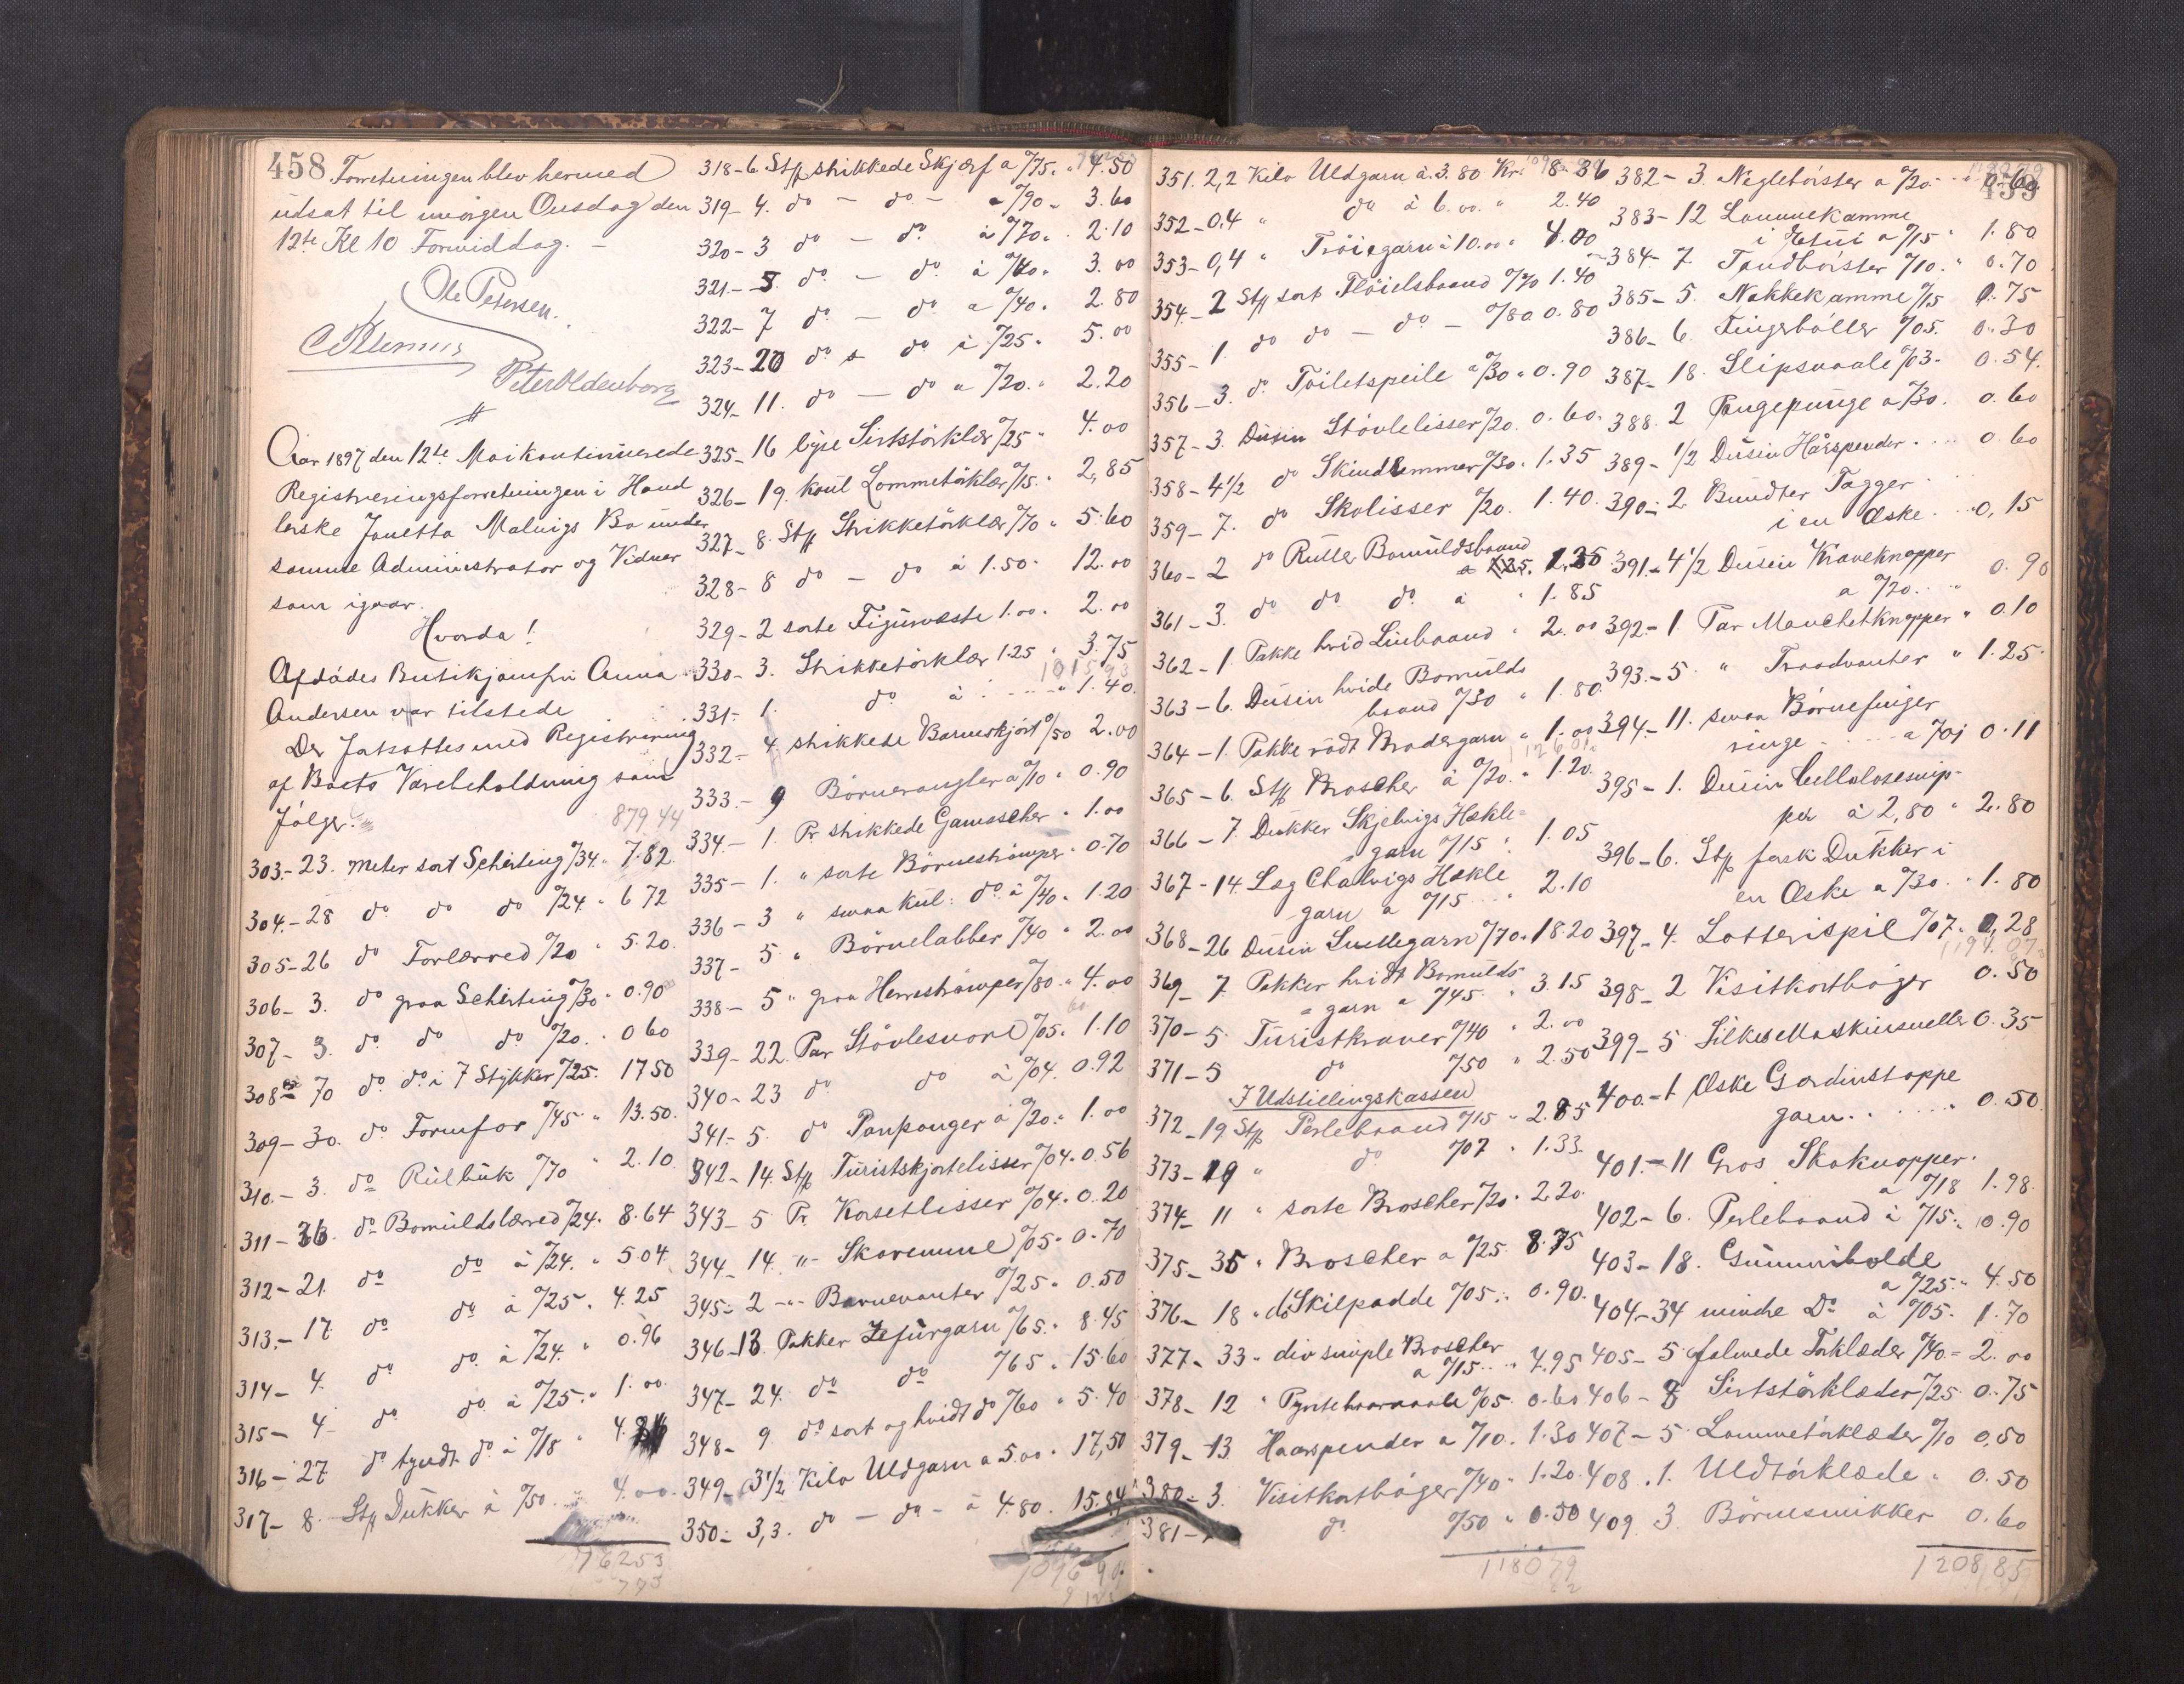 458
Forretningen blev hermed
udsat til imorgen Onsdag den
12te Kl 10 Formiddag. -
Ole Petersen.
Peter Oldenborg
Aar 1897 den 12te Mai kontinuerede
Registreringsforretningen i Hand
lerske Janetta Malvigs Bo under
samme Administrator og Vidner
som igaar.
Hvorda!
Afdödes Butikjomfru Anna
Andersen var tilstede
Der fatsattes med Registrering
af Boets Varebeholdning som
fölger.
879 44
303.- 23. meter sort Schirting a/34. " 7.82
304.- 28 do do do a/24. " 6 72
305- 26 do Forlærred a/20 " 5.20.
306- 3. do graa Schirting a/30 " 0.90
307- 3. do do do a/20. " 0 60
308- 70 do do i 7 Stykker a/25. 17 50
309- 30. do Formfor a/45 " 13.50.
310.- 3. do Rülbük a/70 " 2.10.
311- 36. do Bomuldslærred a/24. 8.64
312- 21. do do à a/24. " 5 04
313.- 17 do do à a/25. 4.25
314- 4. do do. à a/24. " 0.96
315- 4- do do à a/25. " 1.00.
316- 27 do tyndt do à a/18 " 4.
317- 8. Stp Dükker à a/50. 4.00.
762 53
318- 6 Stp strikkede Skjærf a a/75. " 4.50
319- 4. do - do - a a/90. 3.60
320- 3 do - do. à a/70. 2.10
321- 5. do - do à a/60. 3.00
322- 7 do - do a a/40. 2.80
323- 20 do do à a/25. 5.00
324- 11. do - do a a/20. 2.20
325- 16 lyse Sirtstörklær a/25 " 4.00
326- 19. koul Lommetörklær a/15. " 2,85
327- 8. Stp Strikketörklær a/70 " 5.60
328- 8 do - do à 1.50. 12.00
329- 2 sorte Figurveste 1.00. 2.00
330- 3. Strikketörklær 1.25 " 3.75
331.- 1. do à " 1.40.
332- 4. strikkede Barneskjört a/50 2.00
333.- 9 Börnerangler a a/10 " 0.90
334.- 1. Pr strikkede Gamascher " 1.00
335- 1. " sorte Börneströmper " 0.70
336- 3 " smaa kul: do à a/40 " 1.20
337- 5 " Börnelabber a/40 " 2.00
338- 5 " graa Herreströmper a/80. " 4.00
339- 22. Par Stövlesnore a/05. 1.10
340- 23 do do à a/04. 0.92
341.- 5. do Panpanger à a/20. " 1.00
342- 14. Stp Turistskjortelisser a/04. 0.56
343- 5 Pr. Korsetlisser a/04. 0.20
344- 14. "- Skoremme a/05. 0.70
345.- 2 -"- Barnevanter a/25. 0.50
346- 13. Pakker Zefurgarn a/65. " 8.45
347- 24. do do a/65 " 15.60
348- 9. do sort og hvidt do a/60 " 5.40
349- 3 1/2 Kilo Uldgarn a 5.00 " 17,50
350.- 3,3. do - do - à 4.80. 15.84
351. 2,2 Kilo Uldgarn à. 3.80 Kr. 8.36
352- 0,4 " do à 6.00. " 2.40
353- 0,4 " Tröiegarn à 10.00 " 4.00
354.- 2 Stp sort Flöielsbaand a/70 1.40
355- 1. do do - do - a/80. 0.80
356- 3. do Toiletspeile a a/30 " 0.90
357- 3. Düsin Stövlelisser a/20. 0.60.
358- 4 1/2 do Skindremmer a/30. 1.35
359- 7. do Skolisser a/20. 1.40.
360- 2 do Rüller Bomuldsbaand
1.30
361- 3. do do do. à " 1.85
362- 1. Pakke hvid Linbaand " 2.00
363- 6. Düsin hvide Bomulds
baand a/30 " 1.80
364- 1. Pakke rödt Brodergarn " 1.00
365- 6. Stp Broscher à a/20. " 1.20.
366- 7. Dukker Skjelvigs Hækle-
garn a/15 " 1.05
367- 14. Læg Chalvigs Hækle
garn a a/15 2.10
368- 26 Düsin Luslegarn a/70. 18.20
369- 7. Pakker hvidt Bomulds
garn a a/45 " 3.15
370- 5. Turistkraver a/40 " 2.00
371- 5 do a/50 " 2.50
I Udstillingskassen
372- 19. Stp Perlebaand a/15 " 2.85
373- 19 " do a/07 " 1.33.
374- 11 " sorte Broscher a/20. " 2.20.
375- 35 " Broscher a a/25. 8.75
376- 18 " do Skilpadde a/05. " 0.90.
377- 33 " div simple Broscher
a a/15 " 4.95
378- 12 " Pyntehaarnaale a/05. 0.60
379- 13. Haarspender a a/10. 1.30
380- 3. Visitkortböger a/40 " 1.20.
381- do a/50 " 0.50
118079
382- 3. Neglebörster a a/20. - " 0.60
383- 12 Lommekamme
i Etui a a/15 " 1.80
384- 7. Tandbörster a/10. " 0.70
385- 5. Nakkekamme a/15 0.75
386- 6. Fingerböller a/05. 0.30
387- 18. Slipsnaale a/03. 0.54.
388. 2 Pengepunge a a/30. 0.60
389- 1/2 Düsin Hårspender. 0.60
390- 2. Bundter Tagger
i en Æske. 0,15
391.- 4 1/2 Düsin Kraveknapper
a a/20. 0.90
392.- 1. Par Manchetknapper " 0.10
393.- 5. " Traadvanter " 1.25.
394- 11. smaa Börnefinger
ringe. a a/01 0.11
395- 1. Düsin Cellulosesnip-
per à 2,80 " 2.80
396- 6. Stp fork Dukker i
en Æske a a/30. 1.80
397- 4. Lotterispil a/07. 0,28
398- 2 Visitkortböger 0.50
399- 5 Silkesellaskinsneller 0.35
400.- 1 Æske Gardinstoppe
garn. 0.50.
401.- 11 Gros Skoknapper.
a a/18 1.98.
402- 6. Perlebaand à a/15. 0.90
403- 18. Gummibolde
a a/25. " 4.50
404- 34 mindre Do à a/05. 1.70
405- 5 falmede Törklæder a/40. = 2.00
406- 3 Sirtstörklæder a/25 0.75
407- 5. Lommetörklæder a/10 0,50
408. 1. Uldtörklæde " 0.50
409. 3. Börnesmikker 0.60
1208,85